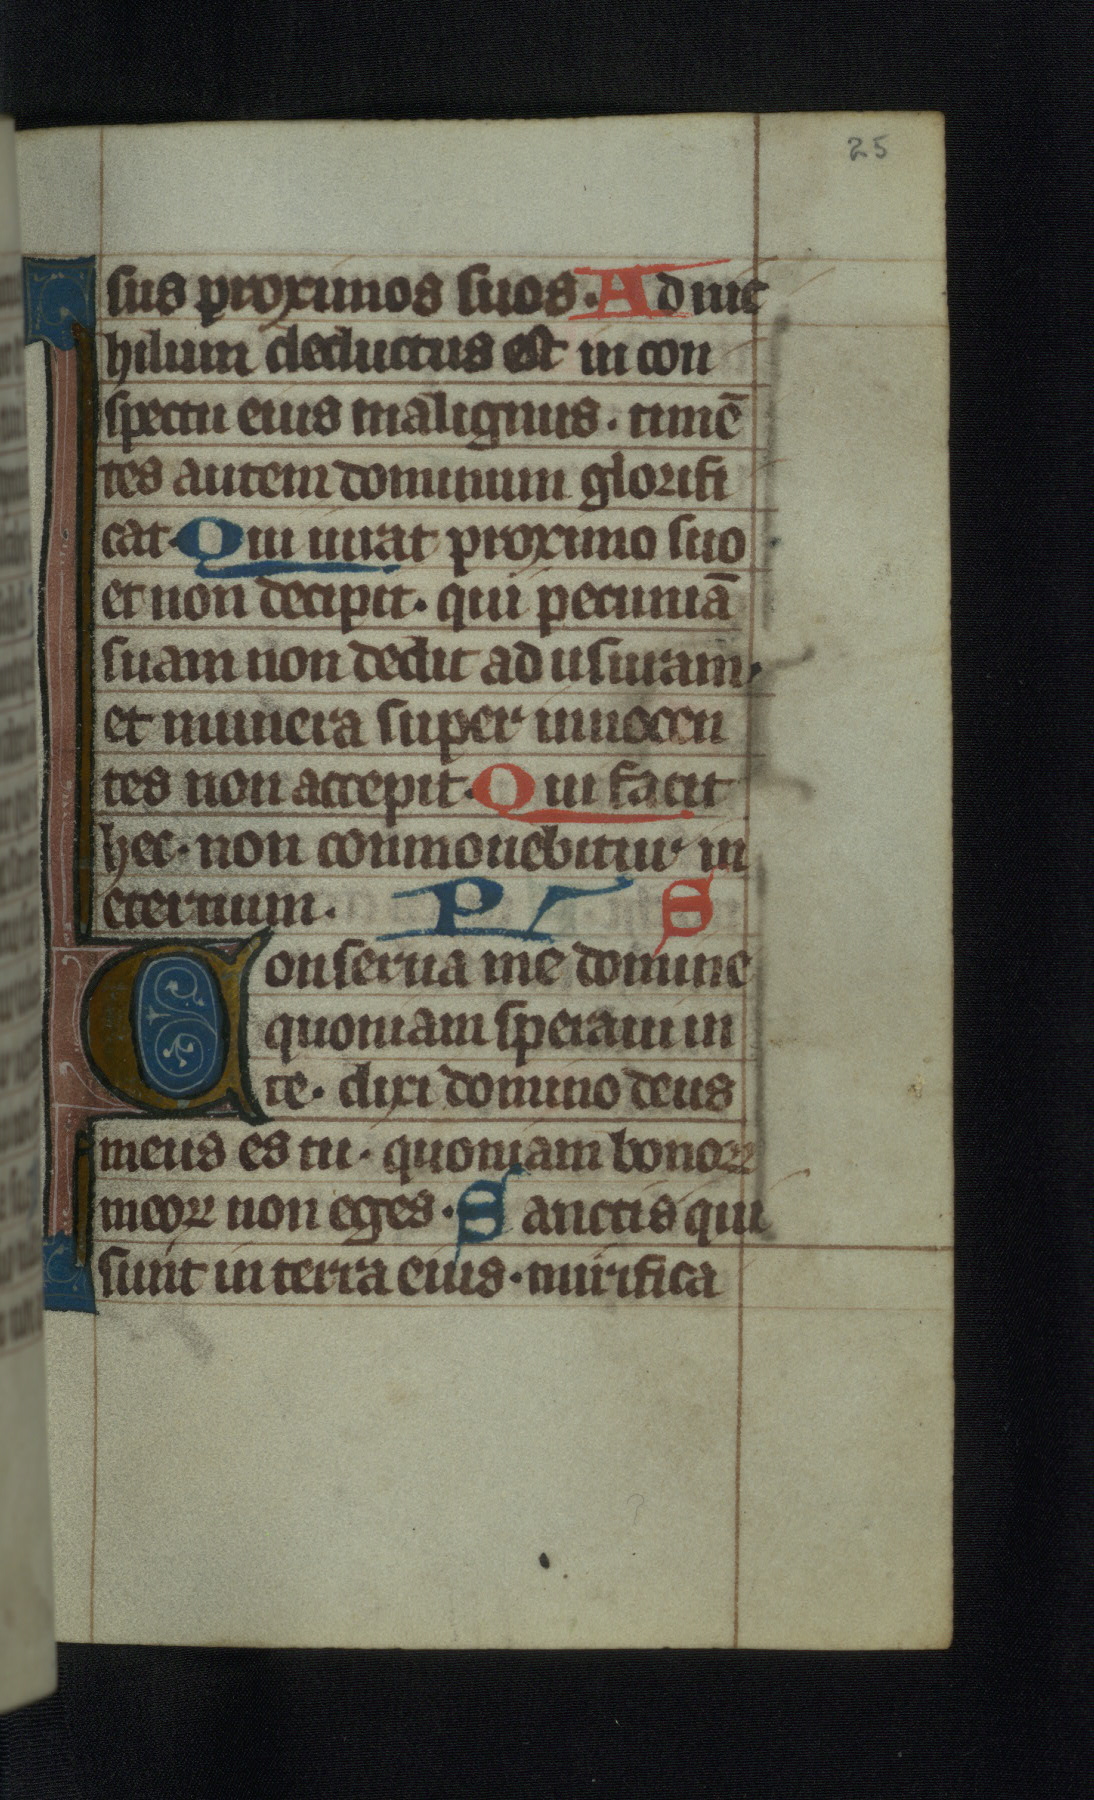 25
sus proximos suos. Ad nic
hilum deductus est in con
spectu eius malignus. timē
tes autem dominum glorifi
cat. Qui iurat proximo suo
et non decipit. qui pecuniā
suam non dedit ad usuram.
et munera super innocen
tes non accepit. Qui facit
hec. non conmouebitur in
eternum. P S
Conserua me domine
quoniam speraui in
te. dixi domino deus
meus es tu. quoniam bonoꝝ
meoꝝ non eges. Sanctis qui
sunt in terra eius. mirifica